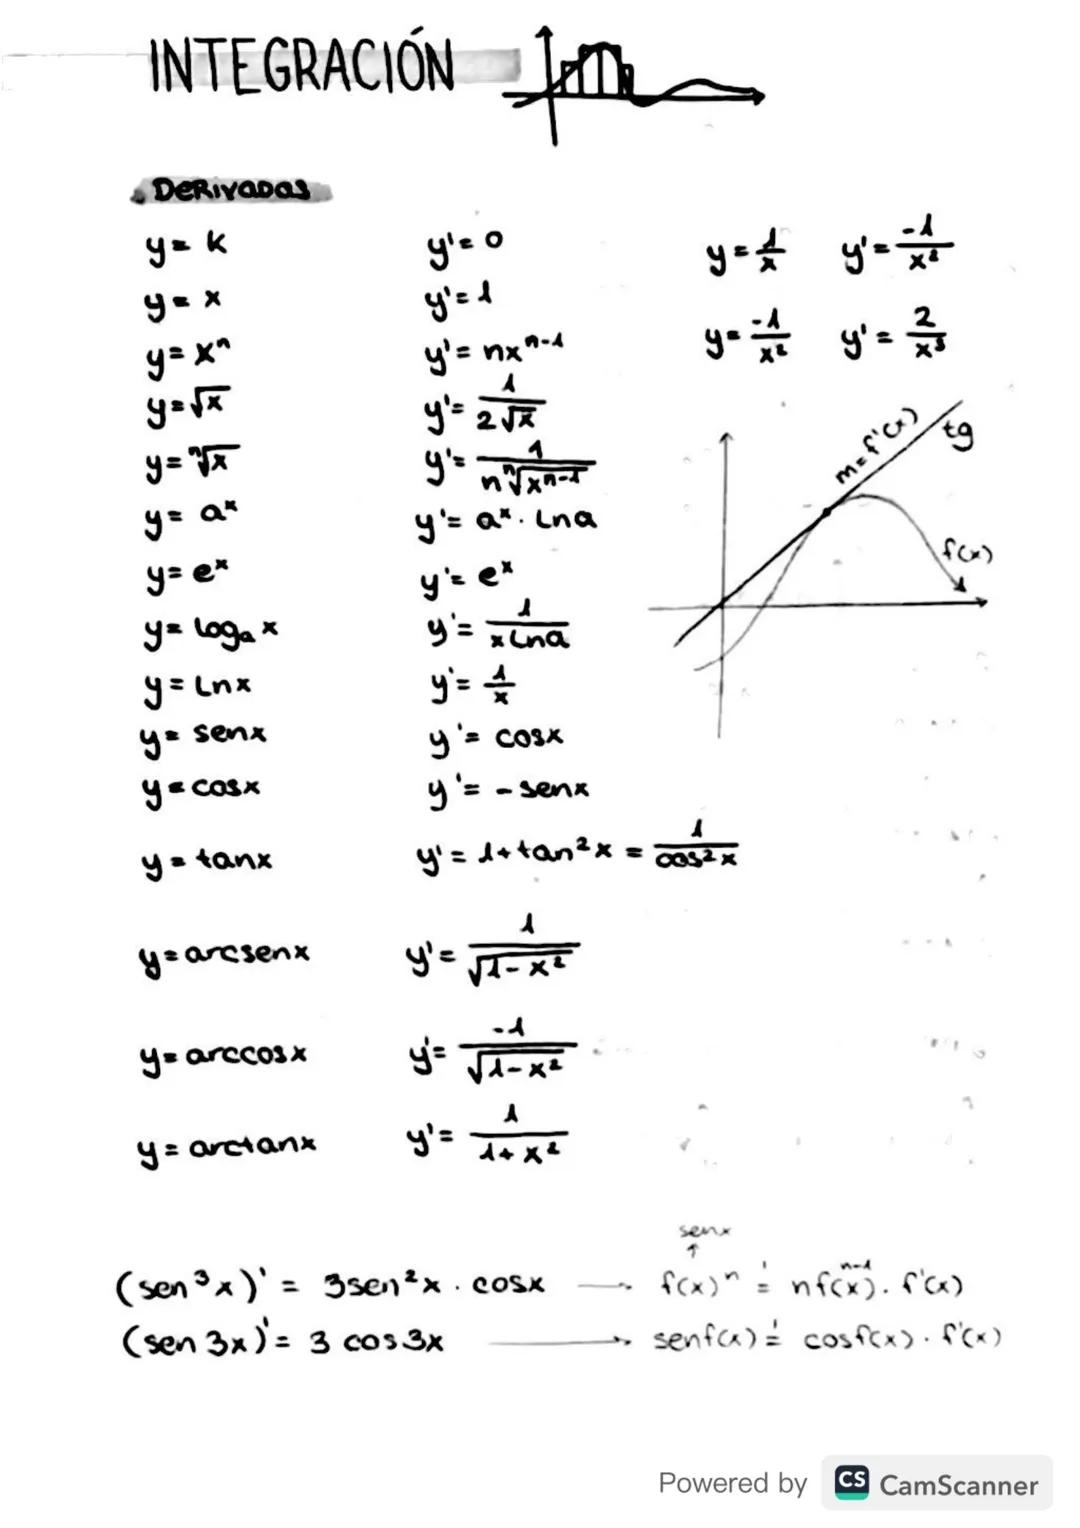 INTEGRACIÓN
DERIVADAS
y = k y' = 0 y = 1/x y' = -1/x²
y = x y' = 1
y = xⁿ y' = nxⁿ⁻¹ y = -1/x² y' = 2/x³
y = √x y' = 1/(2√x)
y = ⁿ√x y' = 1/(n ⁿ√xⁿ⁻¹)
y = aˣ y' = aˣ · Lna
y = eˣ y' = eˣ
y = logₐ x y' = 1/(x Lna)
y = Lnx y' = 1/x
y = senx y' = cosx
y = cosx y' = - senx
y = tanx y' = 1 + tan²x = 1/cos²x
y = arcsenx y' = 1/√(1 - x²)
y = arccosx y' = -1/√(1 - x²)
y = arctanx y' = 1/(1 + x²)
m = f'(x) tg
f(x)
senx
↑
(sen³x)' = 3sen²x · cosx → f(x)ⁿ ' = nf(x)ⁿ⁻¹ · f'(x)
(sen 3x)' = 3 cos3x → senf(x)' = cosf(x) · f'(x)
Powered by CS CamScanner